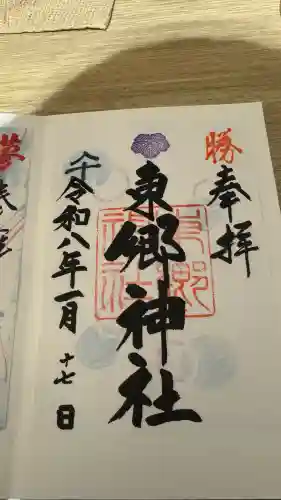 勝
奉拝
東郷神社
東郷神社
令和八年一月十七日